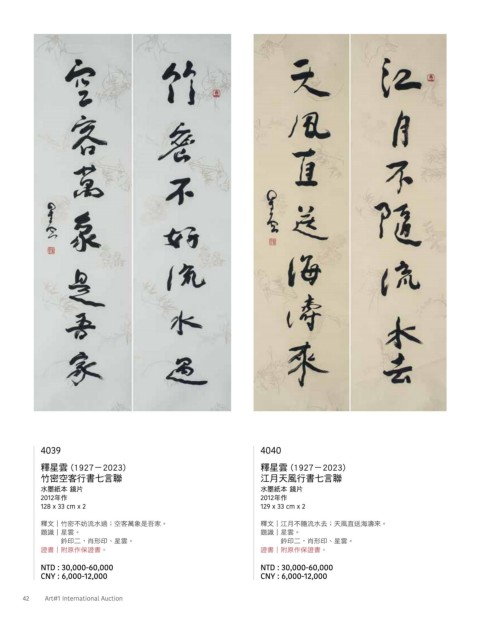 竹密不妨流水過
空容萬象是吾家
星雲
江月不隨流水去
天風直送海濤來
星雲
4039
釋星雲 (1927－2023)
竹密空客行書七言聯
水墨紙本 鏡片
2012年作
128 x 33 cm x 2
釋文｜竹密不妨流水過；空客萬象是吾家。
題識｜星雲。
鈐印二：肖形印、星雲。
證書｜附原作保證書。
NTD : 30,000-60,000
CNY : 6,000-12,000
4040
釋星雲 (1927－2023)
江月天風行書七言聯
水墨紙本 鏡片
2012年作
129 x 33 cm x 2
釋文｜江月不隨流水去；天風直送海濤來。
題識｜星雲。
鈐印二：肖形印、星雲。
證書｜附原作保證書。
NTD : 30,000-60,000
CNY : 6,000-12,000
42 Art#1 International Auction